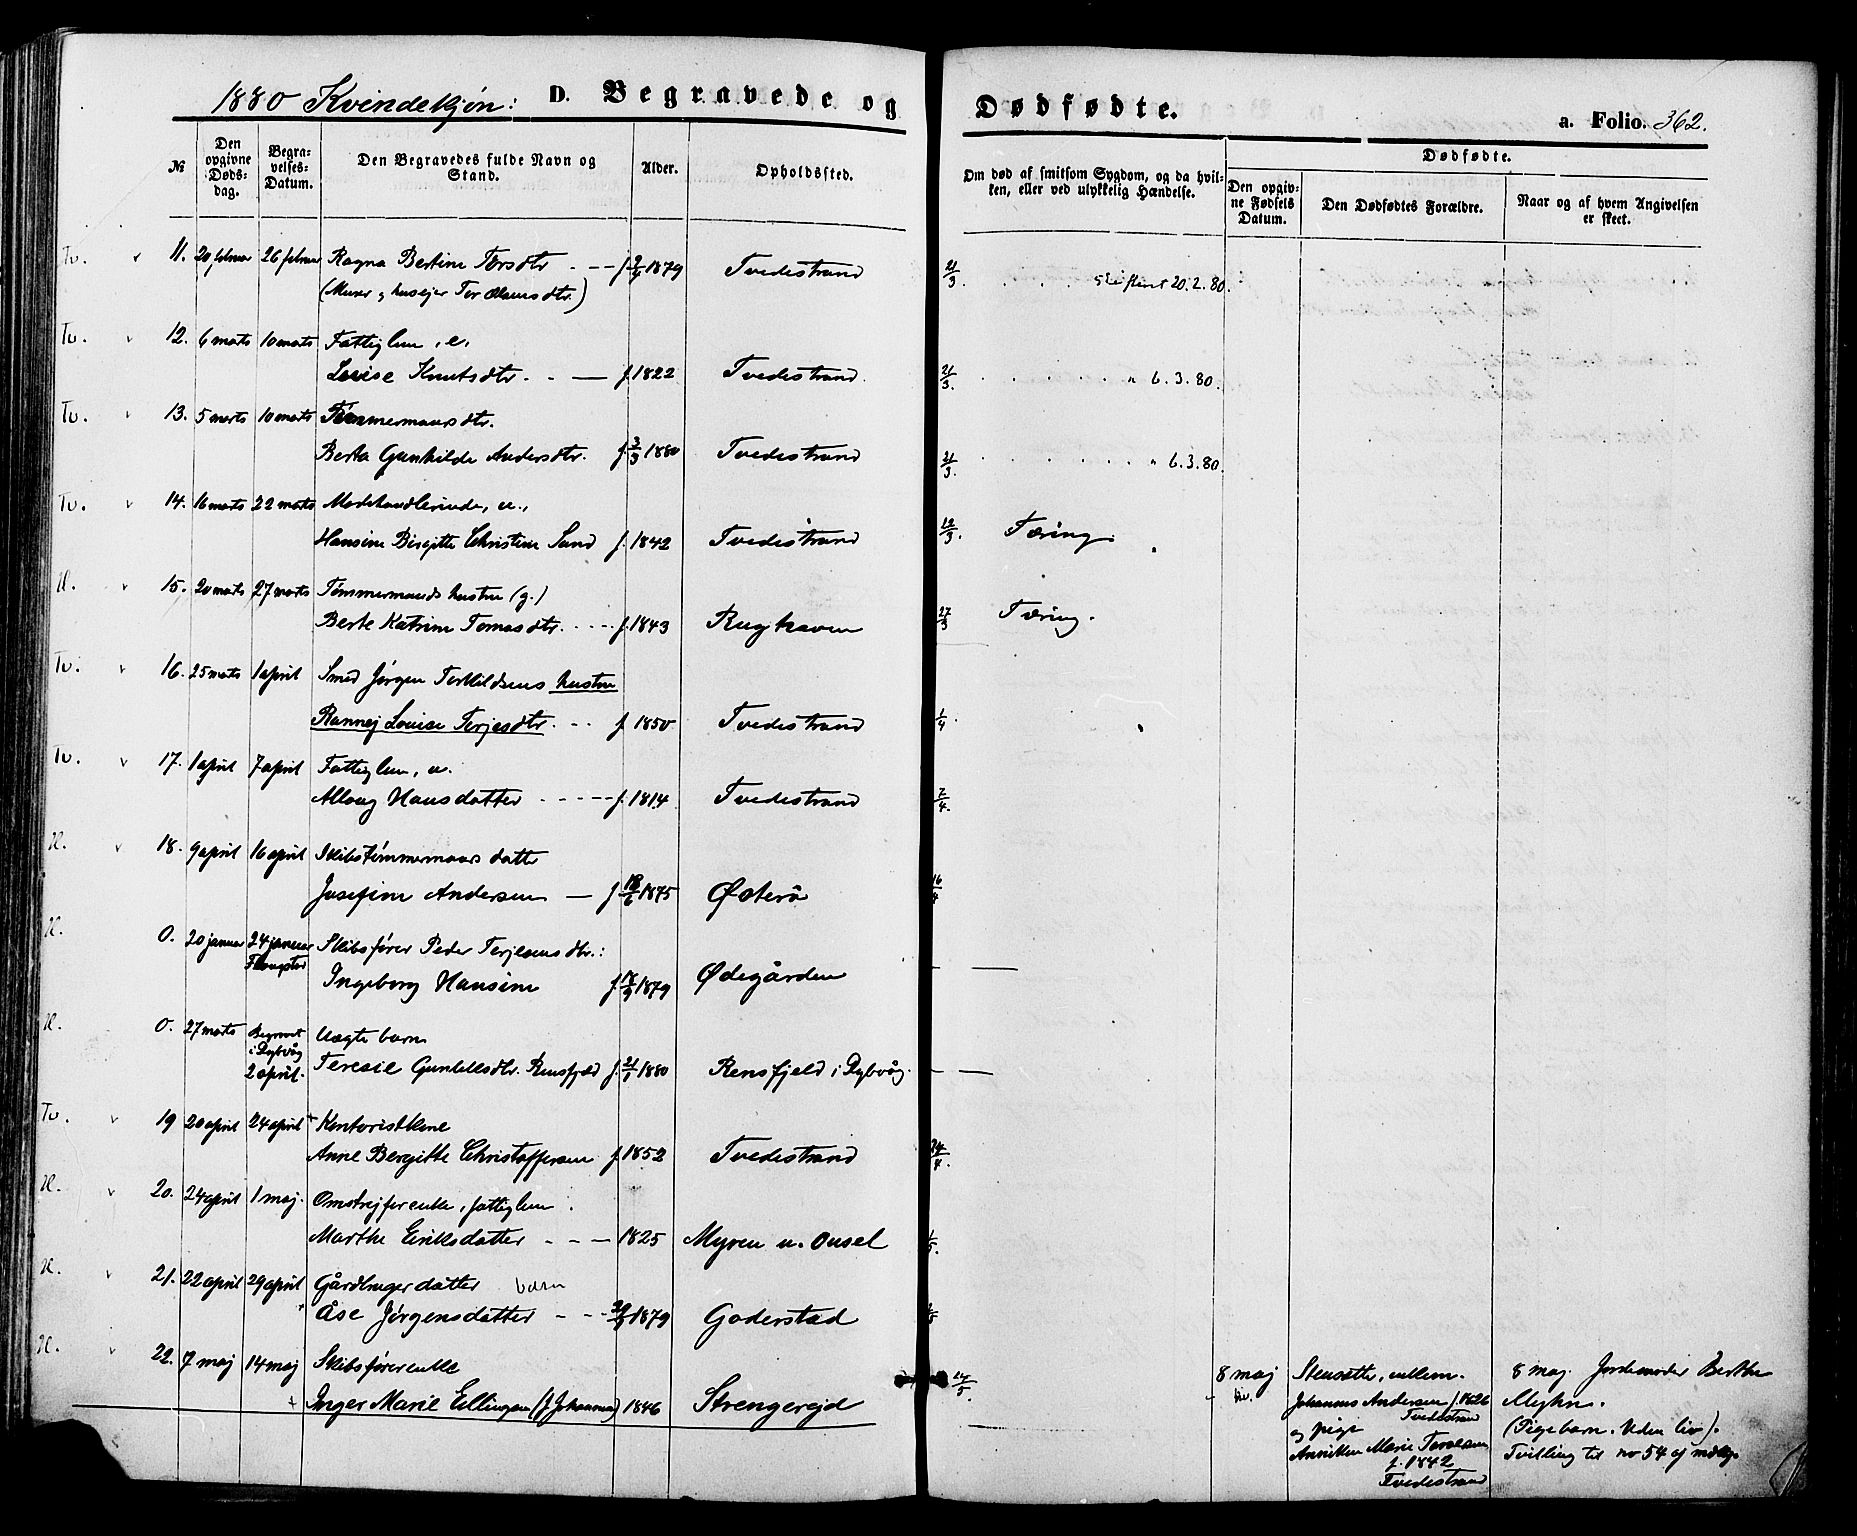 1880 Kvindekjøn: D. Begravede og Dødfødte. a. Folio. 362.
№
Den opgivne Døds-dag.
Begra-velses-Datum.
Den Begravedes fulde Navn og Stand.
Alder.
Opholdssted.
Om død af smitsom Sygdom, og da hvil-ken, eller ved ulykkelig Hændelse.
Dødfødte.
Den opgiv-ne Fødsels Datum.
Den Dødfødtes Forældre.
Naar og af hvem Angivelsen er skeet.
Tv. 11. 20 februar 26 februar Ragna Bertine Torsdtr f. 1879 Tvedestrand 21/3. skiftint 20.2.80.
(Murer og huseier Tor Olsens dtr.)
Tv. 12. 6 marts 10 marts Fattiglem, e.
Lovise Knutsdtr. f. 1822 Tvedestrand 21/3. " 6.3.80.
Tv. 13. 5 marts 10 marts Tømmermansdtr.
Berta Gunhilde Andersdtr. f. 3/3 1880 Tvedestrand 21/3. " 6.3.80.
Tv. 14. 16 marts 22 marts Modehandlerinde, u.,
Hansine Birgitte Christine Sand f. 1842 Tvedestrand 22/3. Tæring.
H. 15. 20 marts 27 marts Tømmermands hustru (g.)
Berte Katrine Tomasdtr. f. 1843 Rughaven 27/3 Tæring.
Tv. 16. 25 marts 1 april Smed Jørgen Terkildsens hustru
Rannej Lovise Terjesdtr. f. 1850 Tvedestrand 1/4.
Tv. 17. 1 april 7 april Fattiglem, u.
Alloug Hansdatter f. 1814 Tvedestrand 7/4.
H. 18. 9 april 16 april Skibstømmermans datter
Josefine Andersen f. 1875 Østerå 16/4
H. 0. 20 januar 24 januar Skibsfører Peder Terjesens dtr.:
Ingeborg Hansine f. 1879 Ødegården
H. 0. 27 marts Begravet i Dybvåg 2 april. Uægte barn
Teresie Gunleksdtr. Rensfjeld f. 21/1 1880 Rensfjeld i Dybvåg.
Tv. 19 20 april 24 april Kontoristkone
Anne Bergitte Christoffersen f. 1852 Tvedestrand 24/4.
H. 20. 24 april 1 maj. Omstrejferenke, fattiglem
Marthe Eriksdatter 1825 Myren u. Ousel 1/5.
H. 21. 22 april 29 april Gårdbruger datter barn
Åse Jørgensdatter 1879 Goderstad 2/5
H. 22. 7 maj 14 maj Skibsførerenke
Inger Marie Ellingsen (f. Johannes) 1846 Strengerejd 14/5
8 maj Stensatte, enkem. 8 maj. Jordemoder Berthe
Johannes Andersen f. 1826 Myhre.
Tvedestrand
og pige (Pigebarn. Uden liv).
Annikken Marie Torelsen Tvilling til no 54 af mdkj.
f. 1842
Tvedestrand